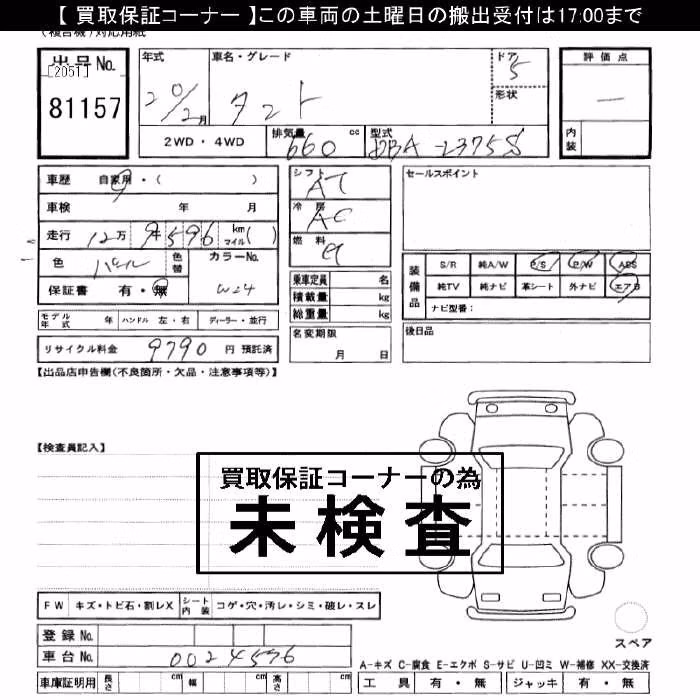 【 買取保証コーナー 】この車両の土曜日の搬出受付は17:00まで
(複合機)対応用紙
出品No.
[2051]
81157
年式
20/2月
車名・グレード
タント
ドア
5
形状
評価点
―
内装
2WD・4WD
排気量 660 cc
型式 DBA-L375S
車歴 自家用・( )
車検 年 月
走行 12万 9千596 km マイル( )
色 パール
色替
カラーNo. W24
保証書 有・無
モデル年式 年 ハンドル 左・右 ディーラー・並行
リサイクル料金 9790 円 預託済
シフト AT
冷房 AC
燃料 G
乗車定員 名
積載量 kg
総重量 kg
名変期限 月 日
セールスポイント
装備品
S/R 純A/W P/S P/W ABS
純TV 純ナビ 革シート 外ナビ エアB
ナビ型番:
後日品
【出品店申告欄(不良箇所・欠品・注意事項等)】
【検査員記入】
買取保証コーナーの為
未検査
FW キズ・トビ石・割レX シート内装 コゲ・穴・汚レ・シミ・破レ・スレ
登録No.
車台No. 0024576
車庫証明用 長さ cm 幅 cm 高さ cm
スペア
A-キズ C-腐食 E-エクボ S-サビ U-凹ミ W-補修 XX-交換済
工具 有・無 ジャッキ 有・無